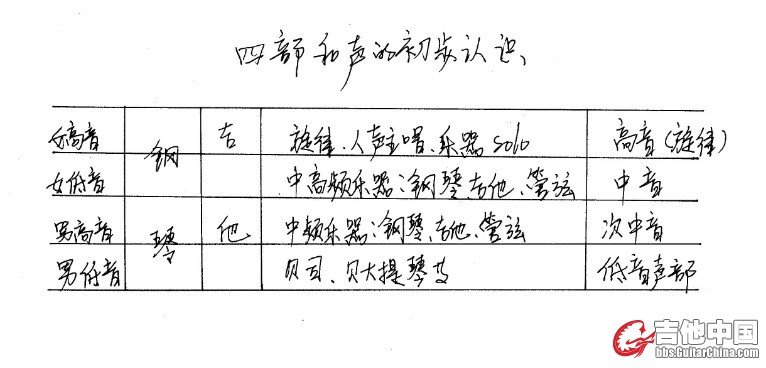 四部和声的初步认识、
女高音 钢 吉 旋律、人声主唱、乐器solo 高音(旋律)
女低音 中高频乐器:钢琴、吉他、管弦 中音
男高音 琴 他 中频乐器:钢琴、吉他、管弦 次中音
男低音 贝司、贝大提琴 低音声部
吉他中国
bbs.GuitarChina.com